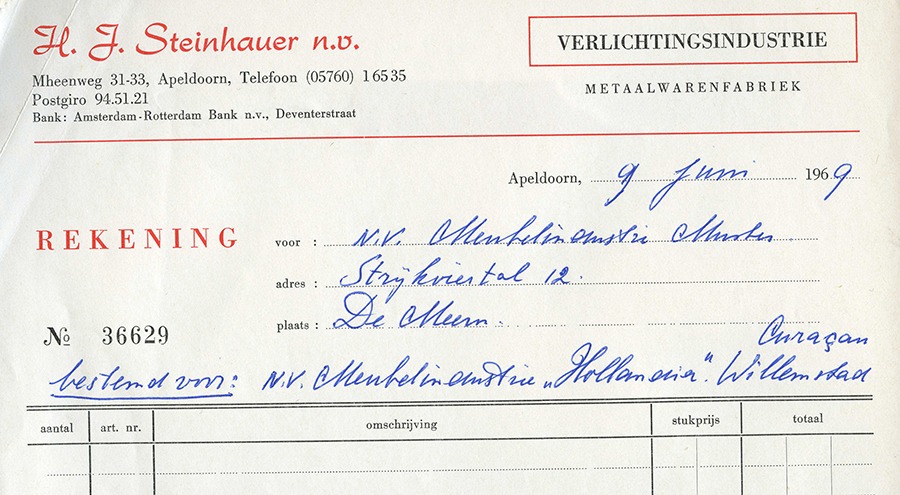 H. J. Steinhauer n.v.
VERLICHTINGSINDUSTRIE
Mheenweg 31-33, Apeldoorn, Telefoon (05760) 16535
METAALWARENFABRIEK
Postgiro 94.51.21
Bank: Amsterdam-Rotterdam Bank n.v., Deventerstraat
Apeldoorn, 9 Juni 1969
REKENING
voor : N.V. Meubelindustrie Muster
adres : Strijkviertal 12.
plaats : De Meern.
№ 36629
Curaçau
bestemd voor: N.V. Meubelindustrie „Hollandia". Willemstad
aantal art. nr. omschrijving stukprijs totaal